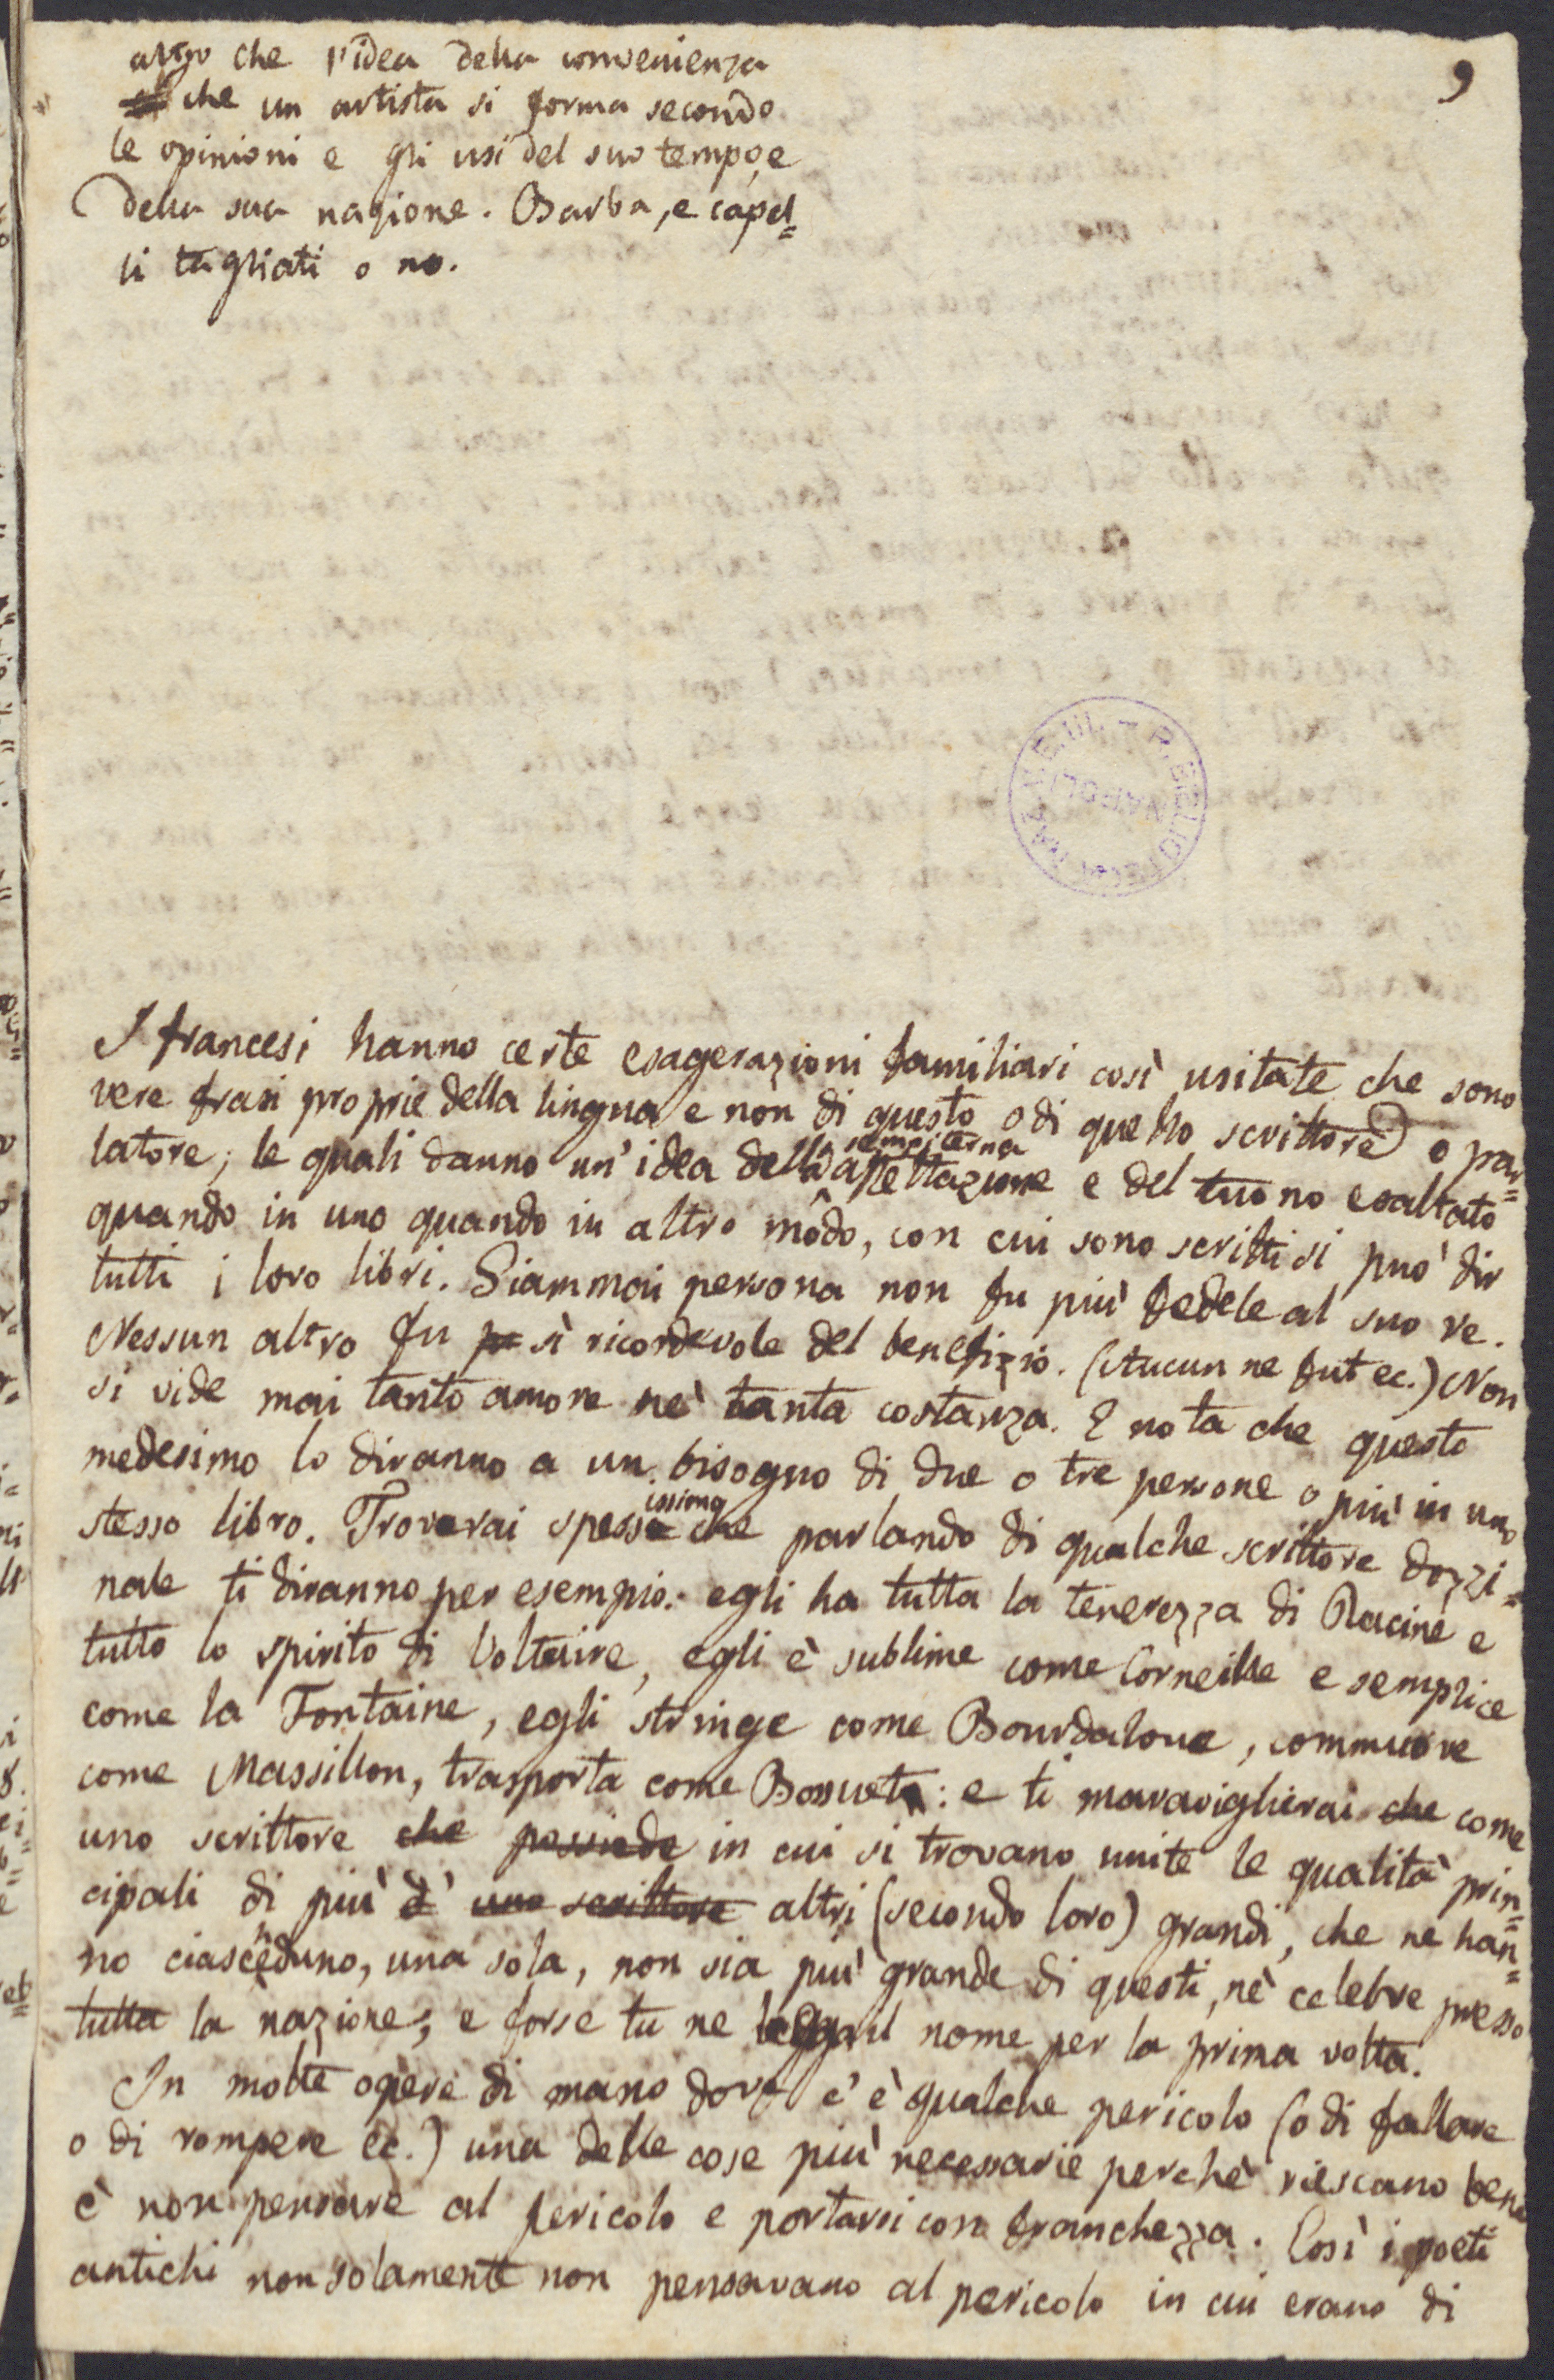 9
altro che l'idea della convenienza
che un artista si forma secondo
le opinioni e gli usi del suo tempo, e
della sua nazione. Barba, e capel=
li tagliati o no.
R. BIBLIOTECA NAZ. V. E. III. NAPOLI
I francesi hanno certe esagerazioni familiari così usitate che sono
vere frasi proprie della lingua e non di questo o di quello scrittore o par=
latore; le quali danno un'idea della sempiterna affettazione e del tuono esaltato
quando in uno quando in altro modo, con cui sono scritti si può dir
tutti i loro libri. Giammai persona non fu più fedele al suo re.
Nessun altro fu sì ricordevole del benefizio. (Aucun ne fut ec.) Non
si vide mai tanto amore nè tanta costanza. E nota che questo
medesimo lo diranno a un bisogno di due o tre persone o più in uno
stesso libro. Troverai spessissimo che parlando di qualche scrittore dozzi=
nale ti diranno per esempio: egli ha tutta la tenerezza di Racine e
tutto lo spirito di Voltaire, egli è sublime come Corneille e semplice
come la Fontaine, egli stringe come Bourdaloue, commuove
come Massillon, trasporta come Bossuet: e ti maraviglierai che come
uno scrittore che possiede in cui si trovano unite le qualità prin=
cipali di più d' uno scrittore altri (secondo loro) grandi, che ne han=
no ciascheduno, una sola, non sia più grande di questi, nè celebre presso
tutta la nazione, e forse tu ne leggi il nome per la prima volta.
In molte opere di mano dove c'è qualche pericolo (o di fallare
o di rompere ec.) una delle cose più necessarie perchè riescano bene
è non pensare al pericolo e portarsi con franchezza. Così i poeti
antichi non solamente non pensavano al pericolo in cui erano di